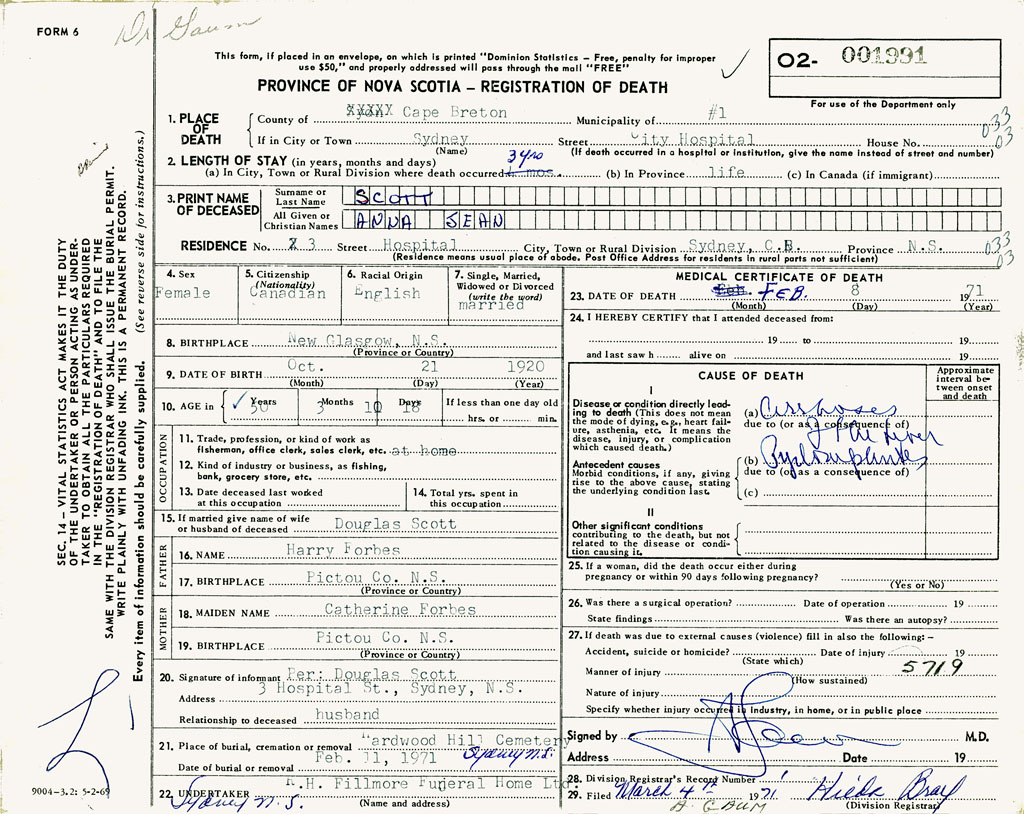 FORM 6
Dr Gaum
This form, if placed in an envelope, on which is printed "Dominion Statistics – Free, penalty for improper
use $50," and properly addressed will pass through the mail "FREE"
PROVINCE OF NOVA SCOTIA – REGISTRATION OF DEATH
02- 001991
For use of the Department only
1. PLACE OF DEATH
County of XXXXX Cape Breton Municipality of #1
033
03
If in City or Town Sydney Street City Hospital House No.
(Name) (If death occurred in a hospital or institution, give the name instead of street and number)
2. LENGTH OF STAY (in years, months and days)
3 yrs
(a) In City, Town or Rural Division where death occurred (b) In Province life (c) In Canada (if immigrant)
3. PRINT NAME OF DECEASED
Surname or Last Name SCOTT
All Given or Christian Names ANNA JEAN
RESIDENCE No. 3 Street Hospital City, Town or Rural Division Sydney, C.B. Province N.S.
033
03
(Residence means usual place of abode. Post Office Address for residents in rural parts not sufficient)
4. Sex
Female
5. Citizenship
(Nationality)
Canadian
6. Racial Origin
English
7. Single, Married,
Widowed or Divorced
(write the word)
married
8. BIRTHPLACE New Glasgow, N.S.
(Province or Country)
9. DATE OF BIRTH Oct. 21 1920
(Month) (Day) (Year)
10. AGE in 50 Years 3 Months 18 Days
If less than one day old
hrs. or min.
OCCUPATION
11. Trade, profession, or kind of work as
fisherman, office clerk, sales clerk, etc. at home
12. Kind of industry or business, as fishing,
bank, grocery store, etc.
13. Date deceased last worked
at this occupation
14. Total yrs. spent in
this occupation
15. If married give name of wife
or husband of deceased Douglas Scott
FATHER
16. NAME Harry Forbes
17. BIRTHPLACE Pictou Co. N.S.
(Province or Country)
MOTHER
18. MAIDEN NAME Catherine Forbes
19. BIRTHPLACE Pictou Co. N.S.
(Province or Country)
20. Signature of informant Per: Douglas Scott
Address 3 Hospital St., Sydney, N.S.
Relationship to deceased husband
21. Place of burial, cremation or removal Hardwood Hill Cemetery
Sydney N.S.
Date of burial or removal Feb. 11, 1971
22. UNDERTAKER A.H. Fillmore Funeral Home Ltd.
Sydney N.S.
(Name and address)
MEDICAL CERTIFICATE OF DEATH
23. DATE OF DEATH FEB. 8 1971
(Month) (Day) (Year)
24. I HEREBY CERTIFY that I attended deceased from:
19 to 19
and last saw h alive on 19
CAUSE OF DEATH
Approximate
interval be-
tween onset
and death
I
Disease or condition directly lead-
ing to death (This does not mean
the mode of dying, e.g., heart fail-
ure, asthenia, etc. It means the
disease, injury, or complication
which caused death.)
(a) Cirrhoses
due to (or as a consequence of)
of the liver
Antecedent causes
Morbid conditions, if any, giving
rise to the above cause, stating
the underlying condition last.
(b)
due to (or as a consequence of)
(c)
II
Other significant conditions
contributing to the death, but not
related to the disease or condi-
tion causing it.
25. If a woman, did the death occur either during
pregnancy or within 90 days following pregnancy?
(Yes or No)
26. Was there a surgical operation? Date of operation 19
State findings Was there an autopsy?
27. If death was due to external causes (violence) fill in also the following:–
Accident, suicide or homicide? Date of injury 19
(State which)
Manner of injury 5719
(How sustained)
Nature of injury
Specify whether injury occurred in industry, in home, or in public place
Signed by M.D.
Address Date 19
28. Division Registrar's Record Number 1
29. Filed March 4th 1971 Hilda Bray
(Division Registrar)
A. GAUM
SEC. 14 – VITAL STATISTICS ACT MAKES IT THE DUTY
OF THE UNDERTAKER OR PERSON ACTING AS UNDER-
TAKER TO OBTAIN ALL THE PARTICULARS REQUIRED
IN THE "REGISTRATION OF DEATH" AND TO FILE THE
SAME WITH THE DIVISION REGISTRAR WHO SHALL ISSUE THE BURIAL PERMIT.
WRITE PLAINLY WITH UNFADING INK. THIS IS A PERMANENT RECORD.
Every item of information should be carefully supplied. (See reverse side for instructions.)
9004–3.2: 5-2-69